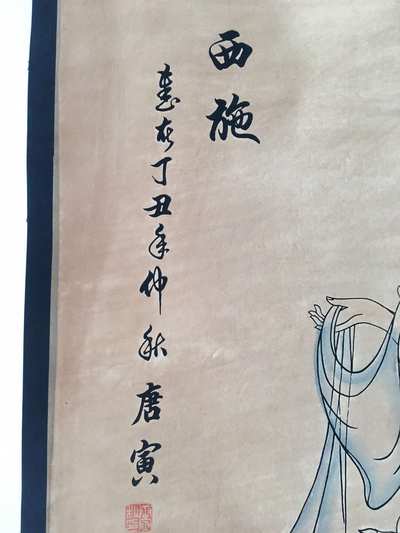 西施
歲在丁丑年仲秋唐寅